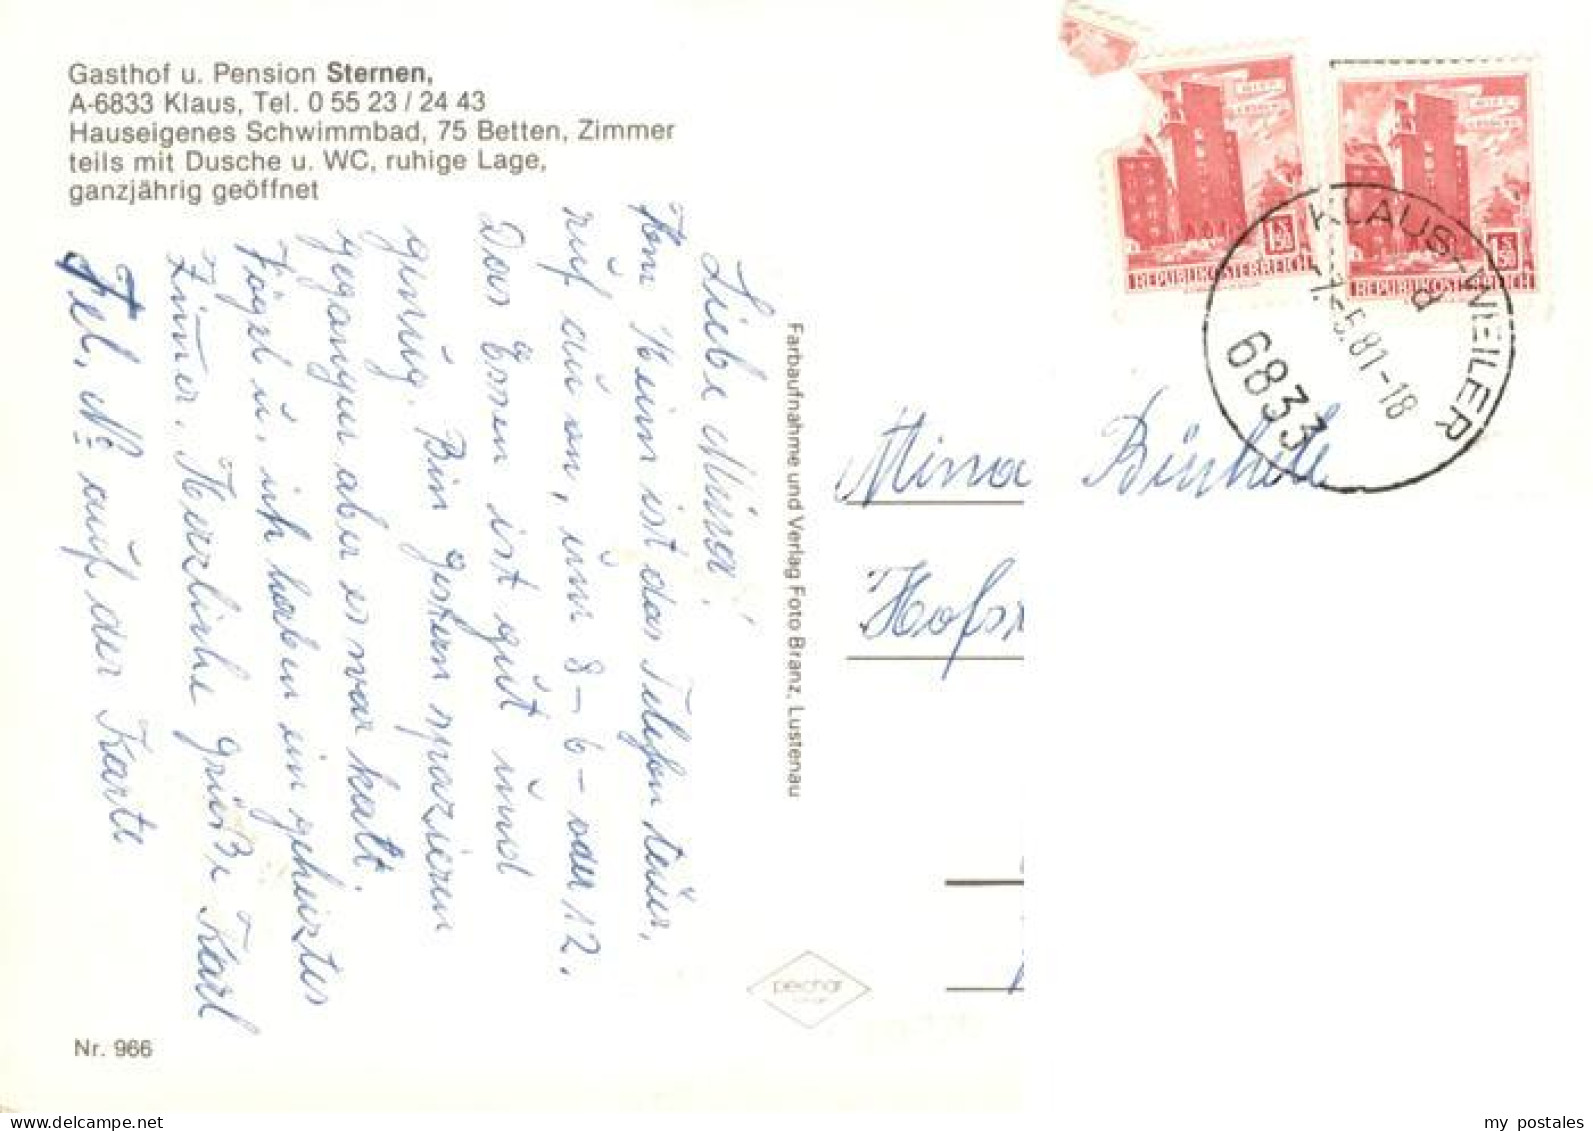 Gasthof u. Pension Sternen,
A-6833 Klaus, Tel. 0 55 23 / 24 43
Hauseigenes Schwimmbad, 75 Betten, Zimmer
teils mit Dusche u. WC, ruhige Lage,
ganzjährig geöffnet
Liebe Mina!
Kein ist das Telefon teuer,
ruf au an, um 8 – 6 – oder 12.
Das Essen ist gut und
genug. Bin gestern spazieren
gegangen aber es war kalt.
Vögel u. ich haben ein geheiztes
Zimmer. Herzliche Grüße Karl
Tel. No auf der Karte
Nr. 966
Farbaufnahme und Verlag Foto Branz, Lustenau
pechar
REPUBLIK ÖSTERREICH
1 S 50
REPUBLIK ÖSTERREICH
1 S 50
KLAUS-WEILER
5.81-18
d
6833
Mina
Hofs
my postales